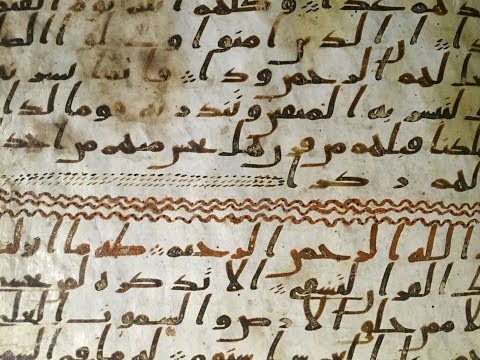 دهم عدا وكلهم
دا ان الذين امنوا وعملوا الصلـ
لهم الرحمن ودا فانما يسرنه
لتبشر به المتقين وتنذر به قوما لدا
هلكنا قبلهم من قرن هل تحس منهم من احد
لهم ركزا
الله الرحمن الرحيم طه ما انزلنـ
القران لتشقى الا تذكرة لمن يخشى
لا ممن خلق الارض والسموت العلى
استوى له ما في السمو